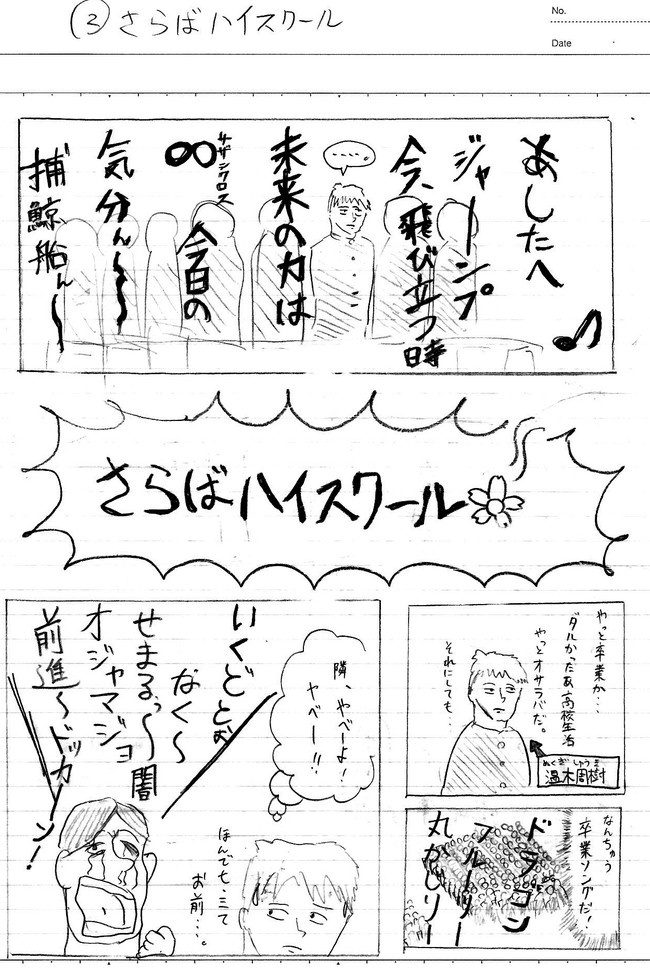 ③さらばハイスクール
No.
Date
あしたへ
ジャーンプ
今、飛び立つ時
・・・・・
未来の力は
サザンクロス
∞ 今日の
気分ん〜〜
捕鯨船ん〜
♪
さらばハイスクール
やっと卒業か・・・
ダルかったあ高校生活
やっとオサラバだ。
それにしても・・
ぬくぎしゅうき
温木周樹
なんちゅう
卒業ソングだ!
ドラゴン
フルーツ
丸かじりー
隣、やべーよ!
ヤベー!!
いくどとお
なく〜
せまるぅ〜闇
オジャマジョ
前進〜ドッカーン!
ほんでも・・て
お前・・・。